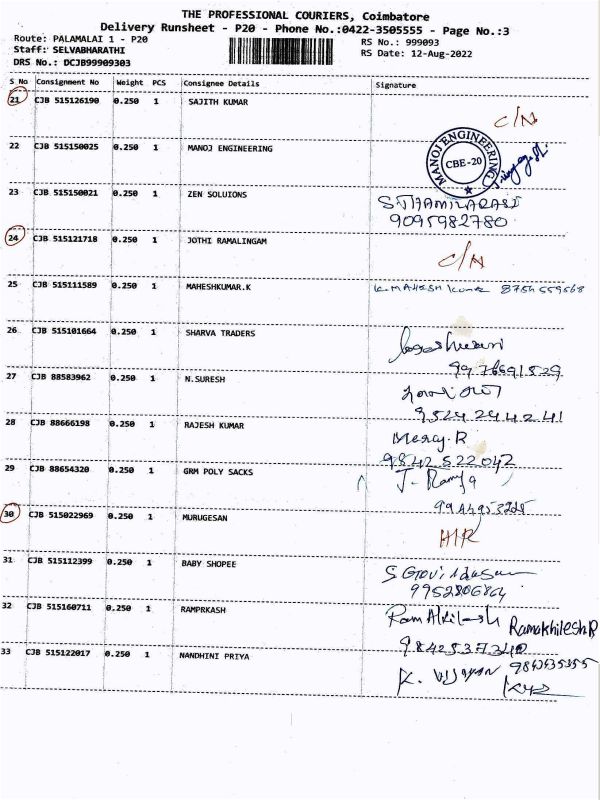 THE PROFESSIONAL COURIERS, Coimbatore
Delivery Runsheet - P20 - Phone No.:0422-3505555 - Page No.:3
Route: PALAMALAI 1 - P20
RS No.: 999093
Staff: SELVABHARATHI
RS Date: 12-Aug-2022
DRS No.: DCJB99909303
S No Consignment No Weight PCS Consignee Details Signature
21 CJB 515126190 0.250 1 SAJITH KUMAR
C/N
22 CJB 515150025 0.250 1 MANOJ ENGINEERING
MANOJ ENGINEERING
CBE-20
23 CJB 515150021 0.250 1 ZEN SOLUIONS
S.THAMILARASI
9095982780
24 CJB 515121718 0.250 1 JOTHI RAMALINGAM
C/N
25 CJB 515111589 0.250 1 MAHESHKUMAR.K
K.MAHESH Kumar
26 CJB 515101664 0.250 1 SHARVA TRADERS
27 CJB 88583962 0.250 1 N.SURESH
9524294241
28 CJB 88666198 0.250 1 RAJESH KUMAR
Mercy.R
9842522042
29 CJB 88654320 0.250 1 GRM POLY SACKS
30 CJB 515022969 0.250 1 MURUGESAN
31 CJB 515112399 0.250 1 BABY SHOPEE
32 CJB 515160711 0.250 1 RAMPRKASH
RamAkilesh RamakhileshR
9842537340
33 CJB 515122017 0.250 1 NANDHINI PRIYA
K. VIJAYAN